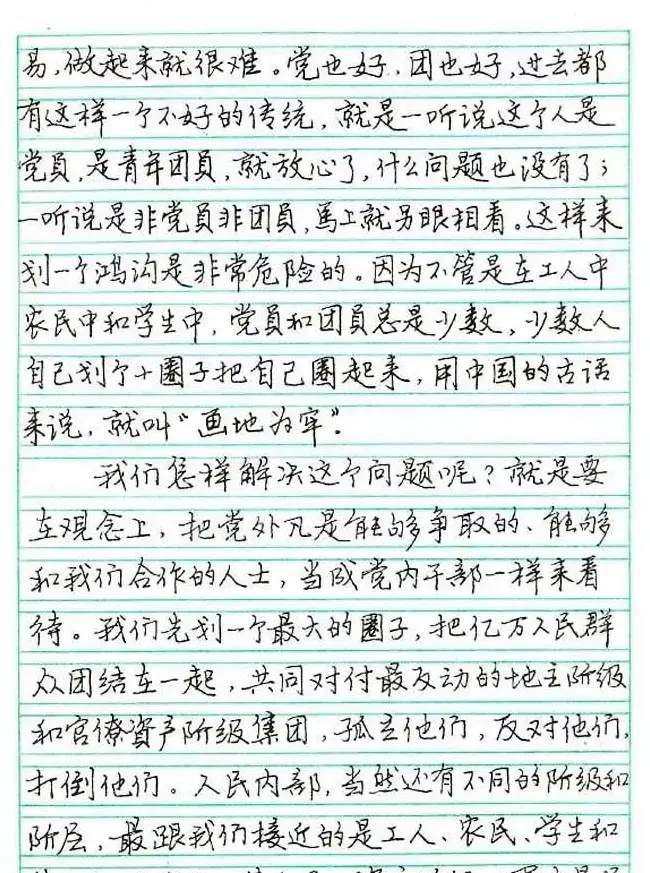 易，做起来就很难。党也好，团也好，过去都
有这样一个不好的传统，就是一听说这个人是
党员，是青年团员，就放心了，什么问题也没有了；
一听说是非党员非团员，馬上就另眼相看。这样来
划一个鸿沟是非常危险的。因为不管是在工人中
农民中和学生中，党员和团员总是少数，少数人
自己划个小圈子把自己圈起来，用中国的古话
来说，就叫“画地为牢”。
我们怎样解决这个问题呢？就是要
在观念上，把党外凡是能够争取的、能够
和我们合作的人士，当成党内干部一样来看
待。我们先划一个最大的圈子，把亿万人民群
众团结在一起，共同对付最反动的地主阶级
和官僚資产阶级集团，孤立他们，反对他们，
打倒他们。人民内部，当然还有不同的阶级和
阶层，最跟我们接近的是工人、农民、学生和